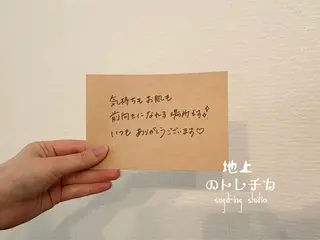 気持ちも お肌も
前向きになれる 場所です
いつも ありがとうございます♡
地上
のトレチカ